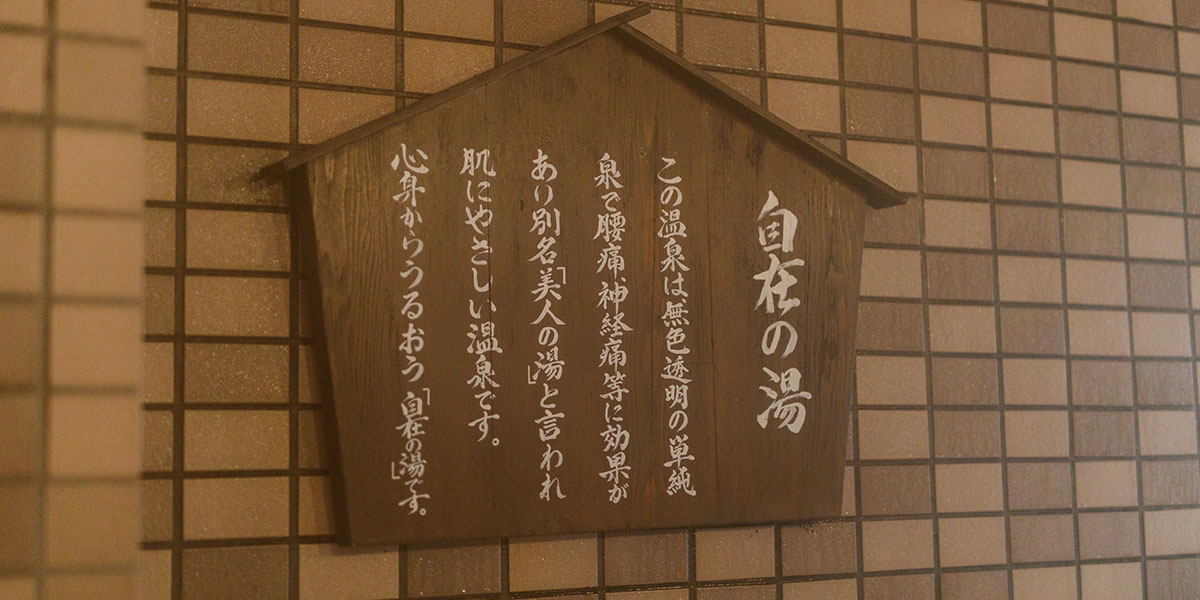 自在の湯
この温泉は、無色透明の単純
泉で腰痛神経痛等に効果が
あり別名「美人の湯」と言われ
肌にやさしい温泉です。
心身からうるおう「自在の湯」です。